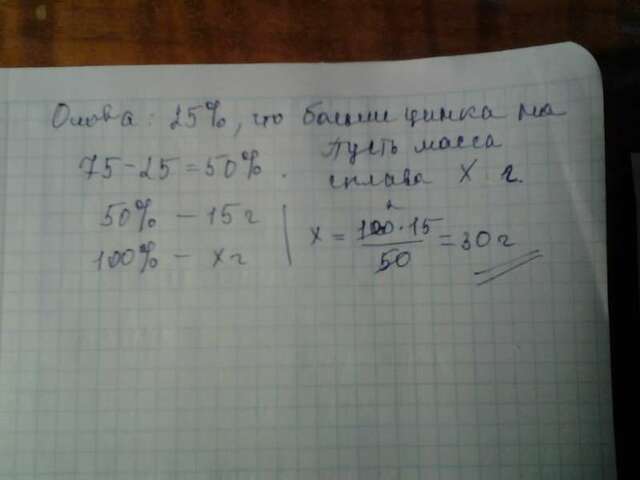 Олова: 25%, что больше цинка на
75-25=50%.
Пусть масса
сплава X г.
50% - 15 г
100% - x г
x = 100·15/50 = 30 г
2